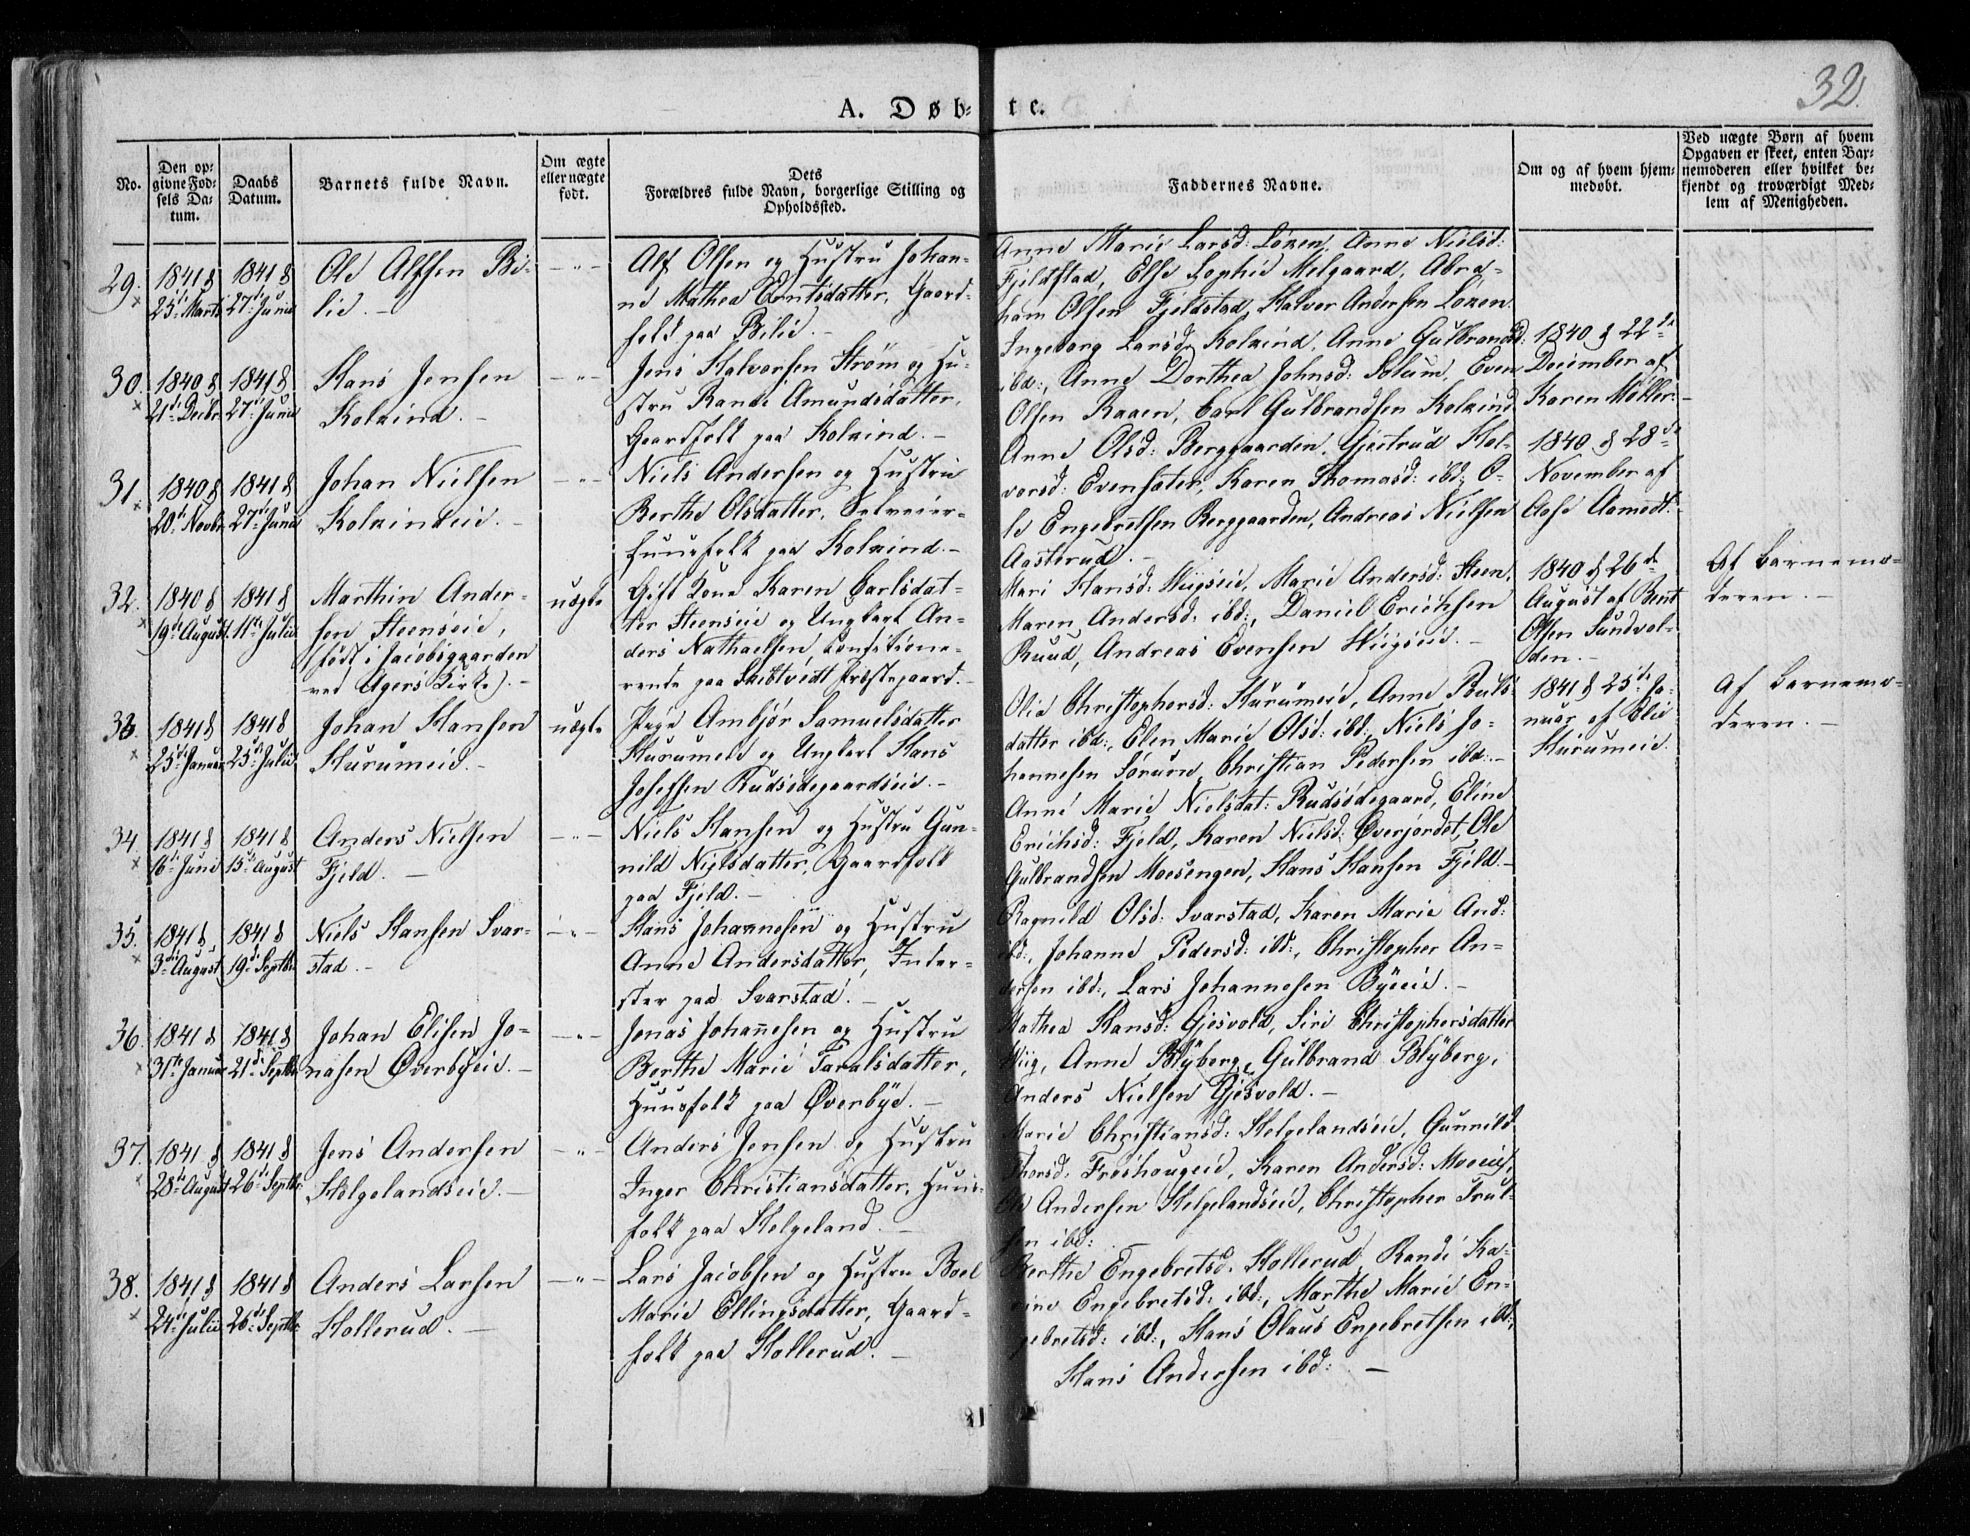 32.
A. Døb-te.
No.
Den op-
givne Fød-
sels Da-
tum.
Daabs
Datum.
Barnets fulde Navn.
Om ægte
eller uægte
født.
Dets
Forældres fulde Navn, borgerlige Stilling og
Opholdssted.
Faddernes Navne.
Om og af hvem hjem-
medøbt.
Ved uægte Børn af hvem
Opgaven er skeet, enten Bar-
nemoderen eller hvilket be-
kjendt og troværdigt Med-
lem af Menigheden.
29.
1841 d
25de Marts
1841 d
27de Junii
Ole Alfsen Bi-
lie. –
– „ –
Alf Olsen og Hustru Johan-
ne Mathea Erntsdatter, Gaard-
folk paa Bilie. –
Anne Marie Larsd: Løken, Anne Nielsd:
Fjeldstad, Else Sophie Melgaard, Abra-
ham Olsen Fjeldstad, Halvor Andersen Løken.
30.
1840 d
21de Decbr
1841 d
27de Junii
Hans Jensen
Kolkind. –
– „ –
Jens Halvorsen Strøm og Hu-
stru Randi Amundsdatter,
Gaardfolk paa Kolkind. –
Ingeborg Larsd: Kolkind, Anne Gulbrandsd:
ibd:, Anne Dorthea Johnsd: Solum, Even
Olsen Raaen, Carl Gulbrandsen Kolkind
1840 d 22de
December af
Karen Møller. –
31.
1840 d
20de Novbr
1841 d
27de Junii
Johan Nielsen
Kolkindeie. –
– „ –
Niels Andersen og Hustru
Berthe Olsdatter, Selveier-
huusfolk paa Kolkind. –
Anne Olsd: Berggaarden, Gjertrud Hal-
vorsd: Evensæter, Karen Thomasd: ibd:, O-
le Engebretsen Berggaarden, Andreas Nielsen
Aasterud. –
1840 d 28de
November af
Aase Aamodt. –
32.
1840 d
19de August
1841 d
11te Julii
Marthin Ander-
sen Steenseie,
(født i Jacobsgaarden
ved Agers Kirke). –
uægte
Gift Kone Karen Carlsdat-
ter Steenseie og Ungkarl An-
ders Nathaelsen, Conditione-
rende paa Præstegaard. –
Mari Hansd: Wiigseie, Marie Andersd: Steen,
Maren Andersd: ibd:, Daniel Erichsen
Ruud, Andreas Evensen Wiigseie. –
1840 d 26de
August af Bent
Olsen Sundvol-
den. –
Af Barnemo-
deren. –
33.
1841 d
25de Januar
1841 d
25de Julii
Johan Hansen
Hurumeie. –
uægte
Pige Ambjør Samuelsdatter
Hurumeie og Ungkarl Hans
Josefsen Rudsødegaardseie. –
Olia Christophersd: Hurumeie, Anne Pouls-
datter ibd:, Elen Marie Olsd: ibd:, Niels Jo-
hannesen Sørum, Christian Pedersen ibd: –
1841 d 25de Ja-
nuar af Elie
Hurumeie.
Af Barnemo-
deren. –
34.
1841 d
16de Juni
1841 d
15de August
Anders Nielsen
Fjeld. –
– „ –
Niels Hansen og Hustru Gun-
nild Nielsdatter, Gaardfolk
paa Fjeld. –
Anne Marie Nielsdat: Rudsødegaard, Eline
Erichsd: Fjeld, Karen Nielsd: Øverjordet, Ole
Gulbrandsen Moesengen, Hans Hansen Fjeld. –
35.
1841 d
3die August
1841 d
19de Septbr
Niels Hansen Svar-
stad. –
– „ –
Hans Johannesen og Hustru
Anne Andersdatter, Inder-
ster paa Svarstad. –
Ragnild Olsd: Svarstad, Karen Marie And:
ibd:, Johanne Pedersd: ibd:, Christopher An-
dersen ibd:, Lars Johannesen Byeeie. –
36.
1841 d
31te Januar
1841 d
21de Septbr
Johan Elisen Jo-
nasen Øverbyeie. –
– „ –
Jonas Johannesen og Hustru
Berthe Marie Taralsdatter,
Huusfolk paa Øverbye. –
Mathea Hansd: Gjesvold, Siri Christophersdatter
Wiig, Anne Blÿberg, Gulbrand Blÿberg,
Anders Nielsen Gjesvold. –
37.
1841 d
28de August
1841 d
26de Septbr
Jens Andersen
Helgelandseie. –
– „ –
Anders Jensen og Hustru
Inger Christiansdatter, Huus-
folk paa Helgeland. –
Marie Christiansd: Helgelandseie, Gunnild
Thorsd: Froshougeie, Karen Andersd: Moeeie,
Ole Andersen Helgelandseie, Christopher Trul-
sen ibd:
38.
1841 d
24de Julii
1841 d
26de Septbr
Anders Larsen
Hollerud. –
– „ –
Lars Jacobsen og Hustru Boel
Marie Ellingsdatter, Gaard-
folk paa Hollerud. –
Berthe Engebretsd: Hollerud, Randi Ka-
rine Engebretsd: ibd:, Marthe Marie En-
gebretsd: ibd:, Hans Olaus Engebretsen ibd:,
Hans Andersen ibd: –